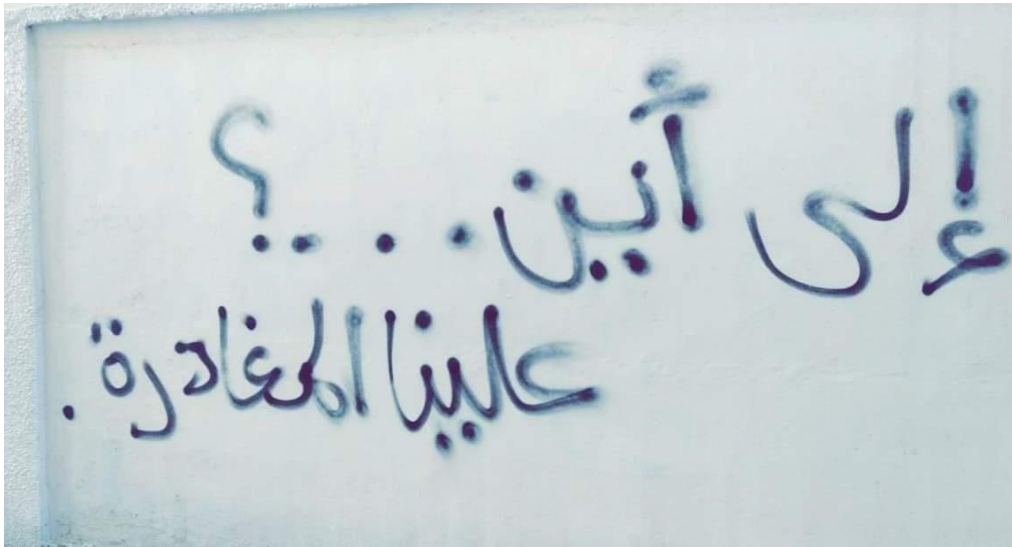 إلى أين...؟
علينا المغادرة.